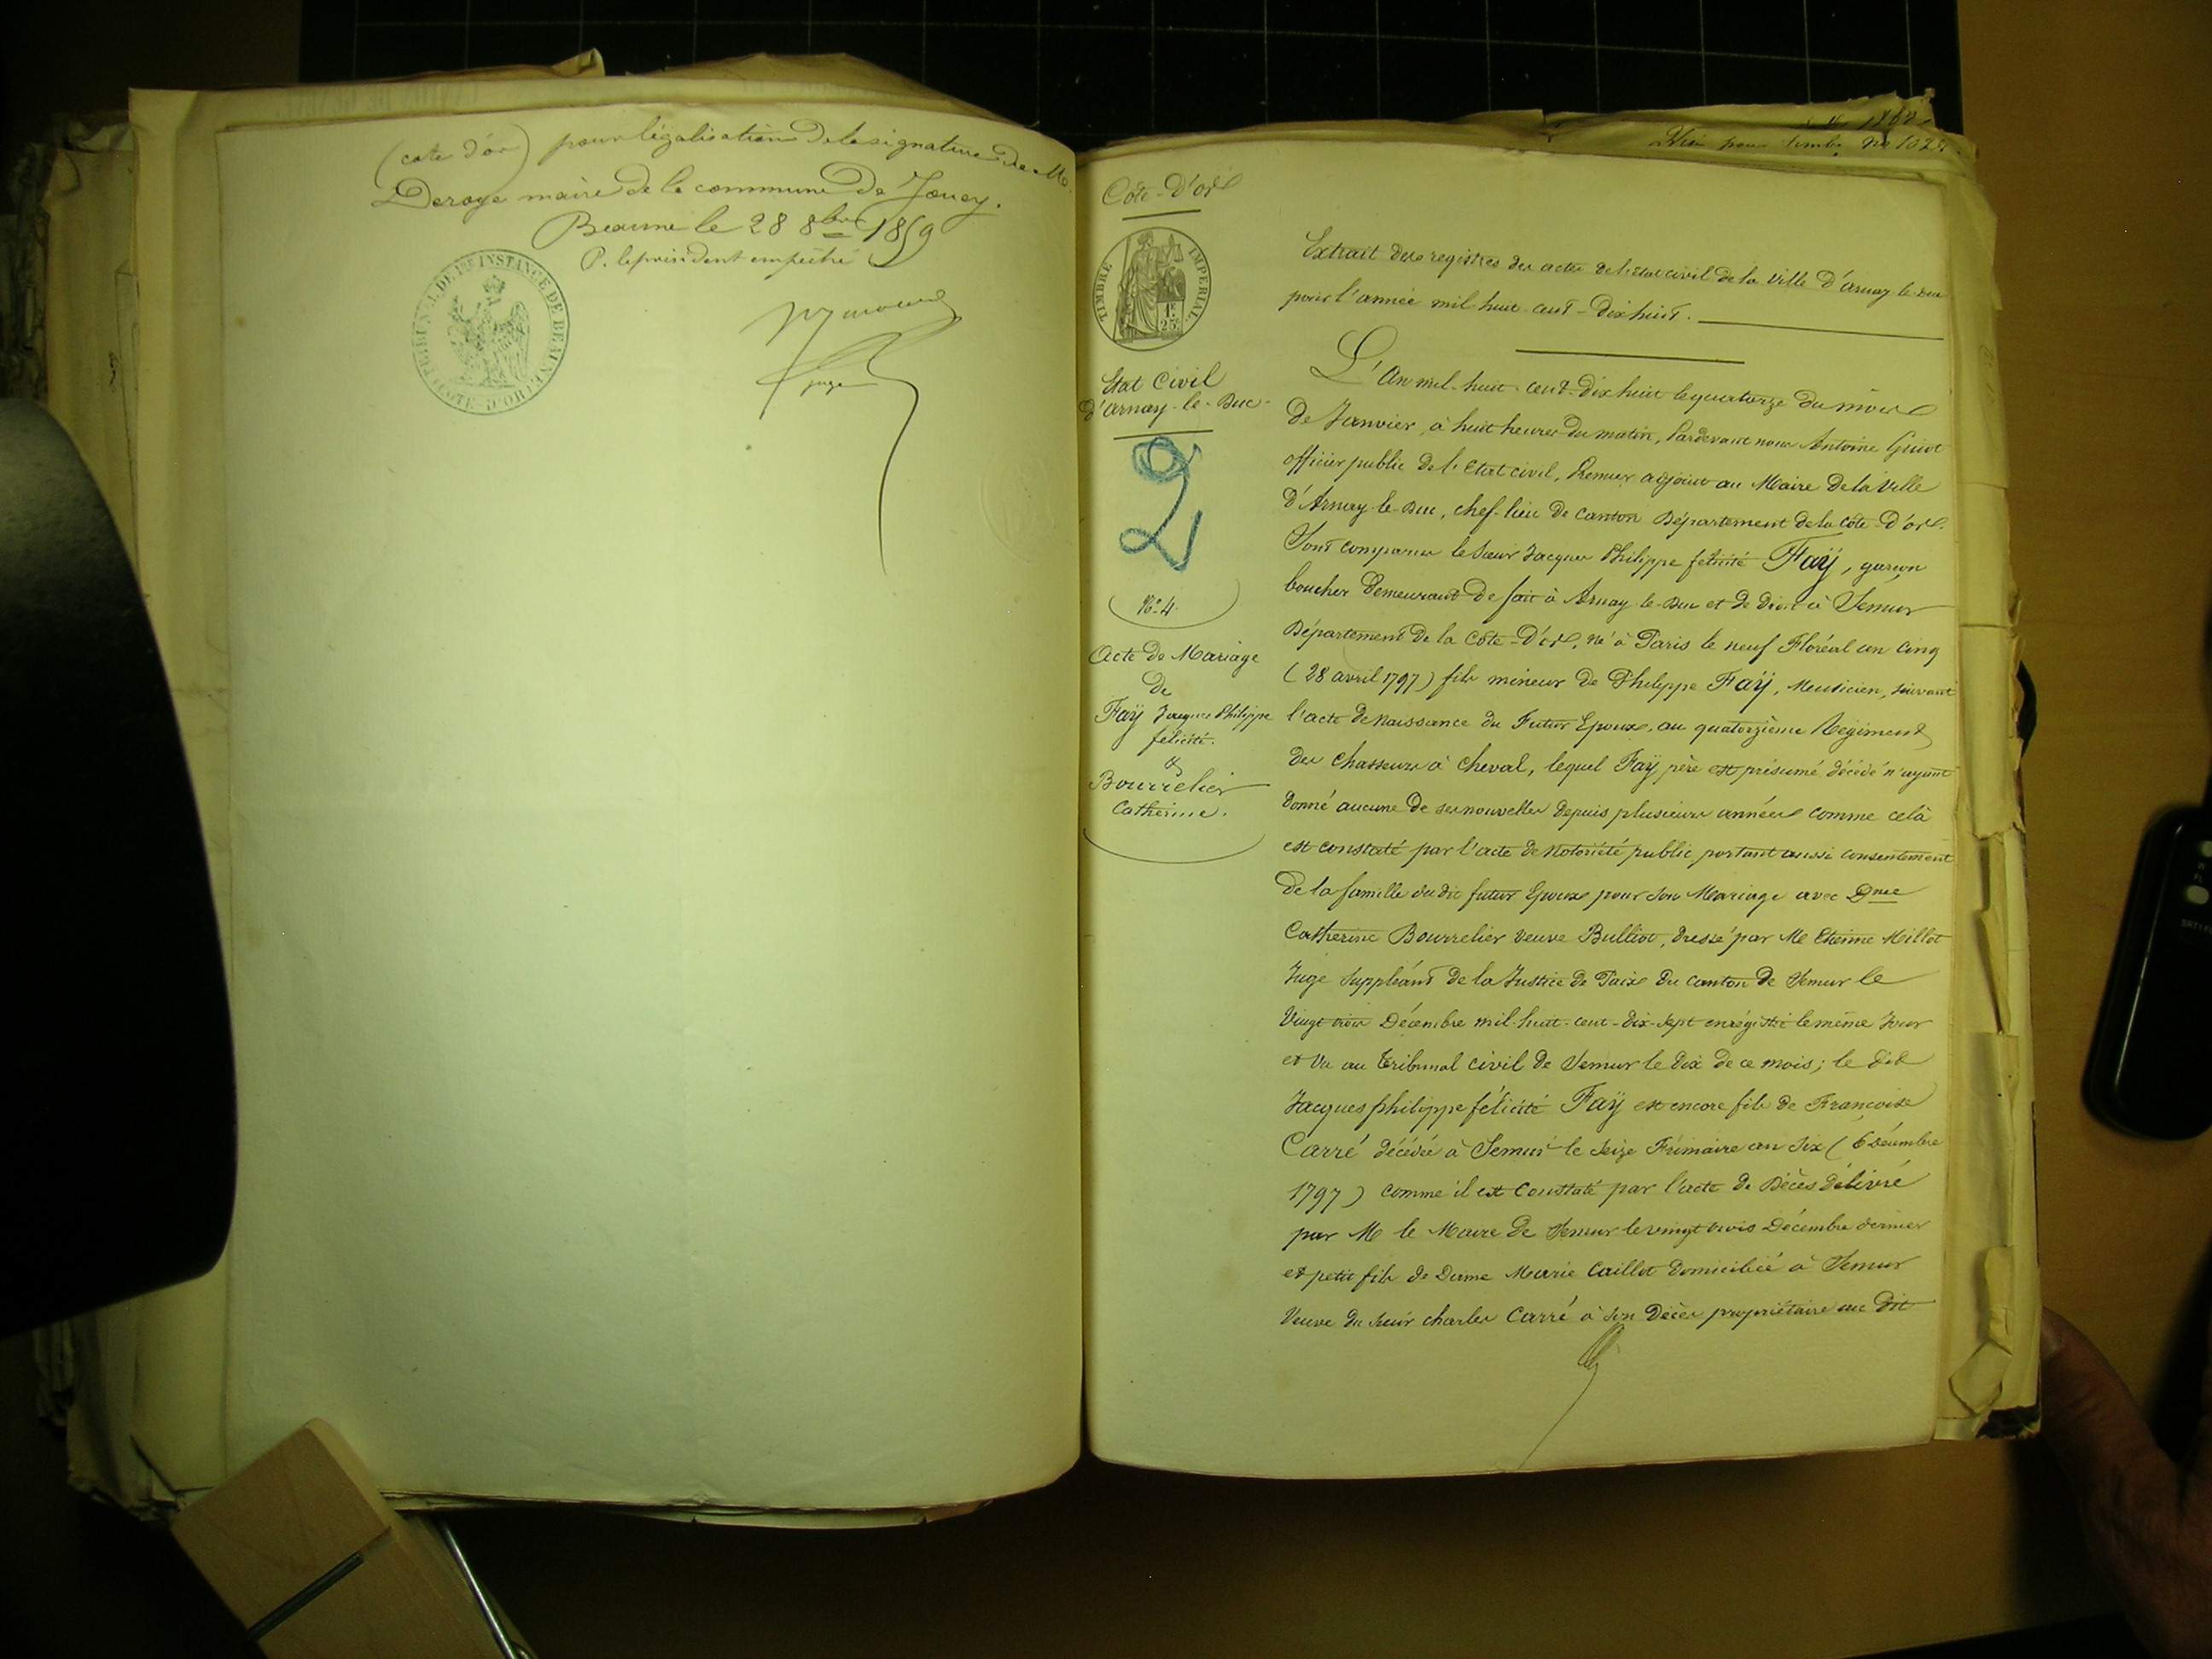 (cote d'or) pour légalisation de la signature de M.
Deroye maire de la commune de Jouey.
Beaune le 28 8bre 1859
P. le président empêché
juge
TRIBUNAL DE 1ERE INSTANCE DE BEAUNE
COTE-D'OR
Visé pour timbre No 1024
Côte-D'or
TIMBRE IMPERIAL
1F
25c
Etat Civil
d'Arnay-le-Duc
2
No. 4.
Acte de Mariage
de
Faÿ Jacques Philippe
félicité.
&
Bourrelier
Catherine.
Extrait des registres des actes de l'Etat civil de la Ville D'arnay-le-Duc
pour l'année mil huit-cent-Dix huit.
L'An mil-huit-cent-Dix huit le quatorze du mois
de Janvier, à huit heures du matin, Pardevant nous Antoine Guiot
officier public de l'Etat civil, Premier adjoint au Maire de la Ville
d'Arnay-le-Duc, chef-lieu de Canton Département de la Côte-D'or.
Sont comparus le Sieur Jacques Philippe félicité Faÿ, garçon
boucher Demeurant de fait à Arnay-le-Duc et de droit à Semur
Département de la Côte-D'or, né à Paris le neuf Floréal an Cinq
(28 avril 1797) fils mineur de Philippe Faÿ, Musicien, suivant
l'acte de Naissance du Futur Epoux, au quatorzième Régiment
des Chasseurs à Cheval, lequel Faÿ père est présumé décédé n'ayant
Donné aucune de ses nouvelles depuis plusieurs années comme celà
est constaté par l'acte de Notoriété public portant aussi consentement
de la famille du dit futur Epoux pour son Mariage avec Dme
Catherine Bourrelier veuve Bulliot, dressé par Me Etienne Millot
Juge Suppléant de la Justice de Paix du Canton de Semur le
Vingt trois Décembre mil-huit-cent-dix-sept enrégistré le même Jour
et Vu au Tribunal Civil de Semur le Dix de ce mois; le dit
Jacques philippe félicité Faÿ est encore fils de Françoise
Carré décédée à Semur le Seize Frimaire an Six (6 Décembre
1797) comme il est Constaté par l'acte de Décès délivré
par M le Maire de Semur le vingt trois Décembre dernier
et petit fils de Dame Marie Caillot Domiciliée à Semur
Veuve du Sieur Charles Carré à son Décès propriétaire au dit